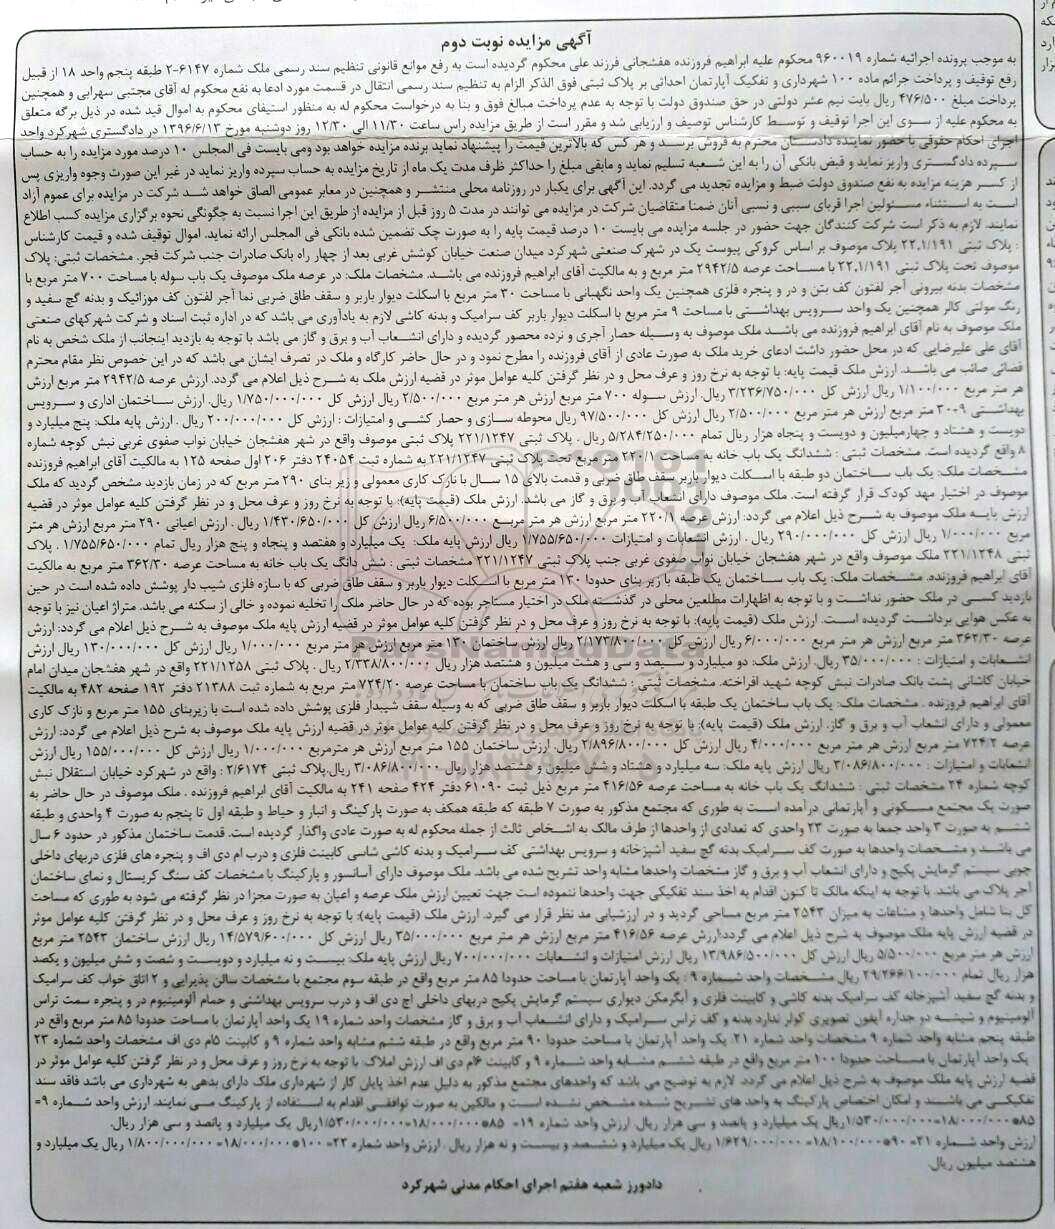 آگهی مزایده نوبت دوم
به موجب پرونده اجرائیه شماره ۹۶۰۰۱۹ محکوم علیه ابراهیم فروزنده هفشجانی فرزند علی محکوم گردیده است به رفع موانع قانونی تنظیم سند رسمی ملک شماره ۶۱۴۷-۲ طبقه پنجم واحد ۱۸ از قبیل
رفع توقیف و پرداخت جرائم ماده ۱۰۰ شهرداری و تفکیک آپارتمان احداثی بر پلاک ثبتی فوق الذکر الزام به تنظیم سند رسمی انتقال در قسمت مورد ادعا به نفع محکوم له آقای مجتبی سهرابی و همچنین
پرداخت مبلغ ۴۷۶/۵۰۰ ریال بابت نیم عشر دولتی در حق صندوق دولت با توجه به عدم پرداخت مبالغ فوق و بنا به درخواست محکوم له به منظور استیفای محکوم به اموال قید شده در ذیل برگه متعلق
به محکوم علیه از سوی این اجرا توقیف و توسط کارشناس توصیف و ارزیابی شد و مقرر است از طریق مزایده راس ساعت ۱۱/۳۰ الی ۱۲/۳۰ روز دوشنبه مورخ ۱۳۹۶/۶/۱۳ در دادگستری شهرکرد واحد
اجرای احکام حقوقی با حضور نماینده دادستان محترم به فروش برسد و هر کس که بالاترین قیمت را پیشنهاد نماید برنده مزایده خواهد بود ومی بایست فی المجلس ۱۰ درصد مورد مزایده را به حساب
سپرده دادگستری واریز نماید و قبض بانکی آن را به این شعبه تسلیم نماید و مابقی مبلغ را حداکثر ظرف مدت یک ماه از تاریخ مزایده به حساب سپرده واریز نماید در غیر این صورت وجوه واریزی پس
از کسر هزینه مزایده به نفع صندوق دولت ضبط و مزایده تجدید می گردد. این آگهی برای یکبار در روزنامه محلی منتشر و همچنین در معابر عمومی الصاق خواهد شد شرکت در مزایده برای عموم آزاد
است به استثناء مسئولین اجرا قربای سببی و نسبی آنان ضمنا متقاضیان شرکت در مزایده می توانند در مدت ۵ روز قبل از مزایده از طریق این اجرا نسبت به چگونگی نحوه برگزاری مزایده کسب اطلاع
نمایند. لازم به ذکر است شرکت کنندگان جهت حضور در جلسه مزایده می بایست ۱۰ درصد قیمت پایه را به صورت چک تضمین شده بانکی فی المجلس ارائه نماید. اموال توقیف شده و قیمت کارشناس
: پلاک ثبتی ۲۲,۱/۱۹۱ پلاک موصوف بر اساس کروکی پیوست یک در شهرک صنعتی شهرکرد میدان صنعت خیابان کوشش غربی بعد از چهار راه بانک صادرات جنب شرکت فجر. مشخصات ثبتی: پلاک
موصوف تحت پلاک ثبتی ۲۲,۱/۱۹۱ با مساحت عرصه ۲۹۴۲/۵ متر مربع و به مالکیت آقای ابراهیم فروزنده می باشد. مشخصات ملک: در عرصه ملک موصوف یک باب سوله با مساحت ۷۰۰ متر مربع با
مشخصات بدنه بیرونی آجر لفتون کف بتن و در و پنجره فلزی همچنین یک واحد نگهبانی با مساحت ۳۰ متر مربع با اسکلت دیوار باربر و سقف طاق ضربی نما آجر لفتون کف موزائیک و بدنه گچ سفید و
رنگ مولتی کالر همچنین یک واحد سرویس بهداشتی با مساحت ۹ متر مربع با اسکلت دیوار باربر کف سرامیک و بدنه کاشی لازم به یادآوری می باشد که در اداره ثبت اسناد و شرکت شهرکهای صنعتی
ملک موصوف به نام آقای ابراهیم فروزنده می باشد ملک موصوف به وسیله حصار آجری و نرده محصور گردیده و دارای انشعاب آب و برق و گاز می باشد با توجه به بازدید اینجانب از ملک شخص به نام
آقای علی علیرضایی که در محل حضور داشت ادعای خرید ملک به صورت عادی از آقای فروزنده را مطرح نمود و در حال حاضر کارگاه و ملک در تصرف ایشان می باشد که در این خصوص نظر مقام محترم
قضائی صائب می باشد. ارزش ملک قیمت پایه: با توجه به نرخ روز و عرف محل و در نظر گرفتن کلیه عوامل موثر در قضیه ارزش ملک به شرح ذیل اعلام می گردد. ارزش عرصه ۲۹۴۲/۵ متر مربع ارزش
هر متر مربع ۱/۱۰۰/۰۰۰ ریال ارزش کل ۳/۲۳۶/۷۵۰/۰۰۰ ریال. ارزش سوله ۷۰۰ متر مربع ارزش هر متر مربع ۲/۵۰۰/۰۰۰ ریال ارزش کل ۱/۷۵۰/۰۰۰/۰۰۰ ریال. ارزش ساختمان اداری و سرویس
بهداشتی ۹+۳۰ متر مربع ارزش هر متر مربع ۲/۵۰۰/۰۰۰ ریال ارزش کل ۹۷/۵۰۰/۰۰۰ ریال محوطه سازی و حصار کشی و امتیازات : ارزش کل ۲۰۰/۰۰۰/۰۰۰ ریال . ارزش پایه ملک: پنج میلیارد و
دویست و هشتاد و چهارمیلیون و دویست و پنجاه هزار ریال تمام ۵/۲۸۴/۲۵۰/۰۰۰ ریال . پلاک ثبتی ۲۲۱/۱۲۴۷ پلاک ثبتی موصوف واقع در شهر هفشجان خیابان نواب صفوی غربی نبش کوچه شماره
۸ واقع گردیده است. مشخصات ثبتی : ششدانگ یک باب خانه به مساحت ۲۲۰/۱ متر مربع تحت پلاک ثبتی ۲۲۱/۱۲۴۷ به شماره ثبت ۲۴۰۵۴ دفتر ۲۰۶ اول صفحه ۱۲۵ به مالکیت آقای ابراهیم فروزنده
مشخصات ملک: یک باب ساختمان دو طبقه با اسکلت دیوار باربر سقف طاق ضربی و قدمت بالای ۱۵ سال با نازک کاری معمولی و زیر بنای ۲۹۰ متر مربع که در زمان بازدید مشخص گردید که ملک
موصوف در اختیار مهد کودک قرار گرفته است. ملک موصوف دارای انشعاب آب و برق و گاز می باشد. ارزش ملک (قیمت پایه): با توجه به نرخ روز و عرف محل و در نظر گرفتن کلیه عوامل موثر در قضیه
ارزش پایه ملک موصوف به شرح ذیل اعلام می گردد: ارزش عرصه ۲۲۰/۱ متر مربع ارزش هر متر مربع ۶/۵۰۰/۰۰۰ ریال ارزش کل ۱/۴۳۰/۶۵۰/۰۰۰ ریال . ارزش اعیانی ۲۹۰ متر مربع ارزش هر متر
مربع ۱/۰۰۰/۰۰۰ ریال ارزش کل ۲۹۰/۰۰۰/۰۰۰ ریال . ارزش انشعابات و امتیازات ۱/۷۵۵/۶۵۰/۰۰۰ ریال ارزش پایه ملک: یک میلیارد و هفتصد و پنجاه و پنج هزار ریال تمام ۱/۷۵۵/۶۵۰/۰۰۰ . پلاک
ثبتی ۲۲۱/۱۲۴۸ ملک موصوف واقع در شهر هفشجان خیابان نواب صفوی غربی جنب پلاک ثبتی ۲۲۱/۱۲۴۷ مشخصات ثبتی : شش دانگ یک باب خانه به مساحت عرصه ۳۶۲/۳۰ متر مربع به مالکیت
آقای ابراهیم فروزنده. مشخصات ملک: یک باب ساختمان یک طبقه با زیر بنای حدودا ۱۳۰ متر مربع با اسکلت دیوار باربر و سقف طاق ضربی که با سازه فلزی شیب دار پوشش داده شده است در حین
بازدید کسی در ملک حضور نداشت و با توجه به اظهارات مطلعین محلی در گذشته ملک در اختیار مستاجر بوده که در حال حاضر ملک را تخلیه نموده و خالی از سکنه می باشد. متراژ اعیان نیز با توجه
به عکس هوایی برداشت گردیده است. ارزش ملک (قیمت پایه): با توجه به نرخ روز و عرف محل و در نظر گرفتن کلیه عوامل موثر در قضیه ارزش پایه ملک موصوف به شرح ذیل اعلام می گردد: ارزش
عرصه ۳۶۲/۳۰ متر مربع ارزش هر متر مربع ۶/۰۰۰/۰۰۰ ریال ارزش کل ۲/۱۷۳/۸۰۰/۰۰۰ ریال ارزش ساختمان ۱۳۰ متر مربع ارزش هر متر مربع ۱/۰۰۰/۰۰۰ ریال ارزش کل ۱۳۰/۰۰۰/۰۰۰ ریال ارزش
انشعابات و امتیازات : ۳۵/۰۰۰/۰۰۰ ریال. ارزش ملک: دو میلیارد و سیصد و سی و هشت میلیون و هشتصد هزار ریال ۲/۳۳۸/۸۰۰/۰۰۰ ریال . پلاک ثبتی ۲۲۱/۱۲۵۸ واقع در شهر هفشجان میدان امام
خیابان کاشانی پشت بانک صادرات نبش کوچه شهید افراخته. مشخصات ثبتی : ششدانگ یک باب ساختمان با مساحت عرصه ۷۲۴/۲۰ متر مربع به شماره ثبت ۲۱۳۸۸ دفتر ۱۹۲ صفحه ۴۸۲ به مالکیت
آقای ابراهیم فروزنده . مشخصات ملک: یک باب ساختمان یک طبقه با اسکلت دیوار باربر و سقف طاق ضربی که به وسیله سقف شیبدار فلزی پوشش داده شده است با زیربنای ۱۵۵ متر مربع و نازک کاری
معمولی و دارای انشعاب آب و برق و گاز. ارزش ملک (قیمت پایه): با توجه به نرخ روز و عرف محل و در نظر گرفتن کلیه عوامل موثر در قضیه ارزش پایه ملک موصوف به شرح ذیل اعلام می گردد: ارزش
عرصه ۷۲۴/۲ متر مربع ارزش هر متر مربع ۴/۰۰۰/۰۰۰ ریال ارزش کل ۲/۸۹۶/۸۰۰/۰۰۰ ریال. ارزش ساختمان ۱۵۵ متر مربع ارزش هر مترمربع ۱/۰۰۰/۰۰۰ ریال ارزش کل ۱۵۵/۰۰۰/۰۰۰ ریال ارزش
انشعابات و امتیازات : ۳/۰۸۶/۸۰۰/۰۰۰ ریال ارزش پایه ملک: سه میلیارد و هشتاد و شش میلیون و هشتصد هزار ریال ۳/۰۸۶/۸۰۰/۰۰۰ ریال.پلاک ثبتی ۲/۶۱۷۴ : واقع در شهرکرد خیابان استقلال نبش
کوچه شماره ۲۴ مشخصات ثبتی : ششدانگ یک باب خانه به مساحت عرصه ۴۱۶/۵۶ متر مربع ذیل ثبت ۶۱۰۹۰ دفتر ۴۲۴ صفحه ۲۴۱ به مالکیت آقای ابراهیم فروزنده . ملک موصوف در حال حاضر به
صورت یک مجتمع مسکونی و آپارتمانی درآمده است به طوری که مجتمع مذکور به صورت ۷ طبقه که طبقه همکف به صورت پارکینگ و انبار و حیاط و طبقه اول تا پنجم به صورت ۴ واحدی و طبقه
ششم به صورت ۳ واحد جمعا به صورت ۲۳ واحدی که تعدادی از واحدها از طرف مالک به اشخاص ثالث از جمله محکوم له به صورت عادی واگذار گردیده است. قدمت ساختمان مذکور در حدود ۶ سال
می باشد و مشخصات واحدها به صورت کف سرامیک بدنه گچ سفید آشپزخانه و سرویس بهداشتی کف سرامیک و بدنه کاشی شاسی کابینت فلزی و درب ام دی اف و پنجره های فلزی دربهای داخلی
چوبی سیستم گرمایش پکیج و دارای انشعاب آب و برق و گاز مشخصات واحدها مشابه واحد تشریح شده می باشد. ملک موصوف دارای آسانسور و پارکینگ با مشخصات کف سنگ کریستال و نمای ساختمان
آجر پلاک می باشد. با توجه به اینکه مالک تا کنون اقدام به اخذ سند تفکیکی جهت واحدها ننموده است جهت تعیین ارزش ملک عرصه و اعیان به صورت مجزا در نظر گرفته می شود به طوری که مساحت
کل بنا شامل واحدها و مشاعات به میزان ۲۵۴۳ متر مربع مساحی گردید و در ارزشیابی مد نظر قرار می گیرد. ارزش ملک (قیمت پایه): با توجه به نرخ روز و عرف محل و در نظر گرفتن کلیه عوامل موثر
در قضیه ارزش پایه ملک موصوف به شرح ذیل اعلام می گردد:ارزش عرصه ۴۱۶/۵۶ متر مربع ارزش هر متر مربع ۳۵/۰۰۰/۰۰۰ ریال ارزش کل ۱۴/۵۷۹/۶۰۰/۰۰۰ ریال ارزش ساختمان ۲۵۴۳ متر مربع
ارزش هر متر مربع ۵/۵۰۰/۰۰۰ ریال ارزش کل ۱۳/۹۸۶/۵۰۰/۰۰۰ ریال ارزش امتیازات و انشعابات ۷۰۰/۰۰۰/۰۰۰ ریال ارزش پایه ملک: بیست و نه میلیارد و دویست و شصت و شش میلیون و یکصد
هزار ریال تمام ۲۹/۲۶۶/۱۰۰/۰۰۰ ریال مشخصات واحد شماره ۹ : یک واحد آپارتمان با مساحت حدودا ۸۵ متر مربع واقع در طبقه سوم مجتمع با مشخصات سالن پذیرایی و ۲ اتاق خواب کف سرامیک
و بدنه گچ سفید آشپزخانه کف سرامیک بدنه کاشی و کابینت فلزی و آبگرمکن دیواری سیستم گرمایش پکیج دربهای داخلی اچ دی اف و درب سرویس بهداشتی و حمام آلومینیوم در و پنجره سمت تراس
آلومینیوم و شیشه دو جداره آیفون تصویری کولر ندارد بدنه و کف تراس سرامیک و دارای انشعاب آب و برق و گاز مشخصات واحد شماره ۱۹ یک واحد آپارتمان با مساحت حدودا ۸۵ متر مربع واقع در
طبقه پنجم مشابه واحد شماره ۹ مشخصات واحد شماره ۲۱ یک واحد آپارتمان با مساحت حدودا ۹۰ متر مربع واقع در طبقه ششم مشابه واحد شماره ۹ و کابینت ام دی اف مشخصات واحد شماره ۲۳
یک واحد آپارتمان با مساحت حدودا ۱۰۰ متر مربع واقع در طبقه ششم مشابه واحد شماره ۹ و کابینت ام دی اف ارزش املاک: با توجه به نرخ روز و عرف محل و در نظر گرفتن کلیه عوامل موثر در
قضیه ارزش پایه ملک موصوف به شرح ذیل اعلام می گردد. لازم به توضیح می باشد که واحدهای مجتمع مذکور به دلیل عدم اخذ پایان کار از شهرداری ملک دارای بدهی به شهرداری می باشد فاقد سند
تفکیکی می باشند و امکان اختصاص پارکینگ به واحد های تشریح شده مشخص نشده است و مالکین به صورت توافقی اقدام به استفاده از پارکینگ می نمایند. ارزش واحد شماره ۹=
۸۵*۱۸/۰۰۰/۰۰۰=۱/۵۳۰/۰۰۰/۰۰۰ریال یک میلیارد و پانصد و سی هزار ریال. ارزش واحد شماره ۱۹= ۸۵*۱۸/۰۰۰/۰۰۰=۱/۵۳۰/۰۰۰/۰۰۰ریال یک میلیارد و پانصد و سی هزار ریال.
ارزش واحد شماره ۲۱= ۹۰*۱۸/۱۰۰/۰۰۰=۱/۶۲۹/۰۰۰/۰۰۰ ریال یک میلیارد و ششصد و بیست و نه هزار ریال . ارزش واحد شماره ۲۳= ۱۰۰*۱۸/۰۰۰/۰۰۰=۱/۸۰۰/۰۰۰/۰۰۰ ریال یک میلیارد و
هشتصد میلیون ریال.
دادورز شعبه هفتم اجرای احکام مدنی شهرکرد
ParsNamadData